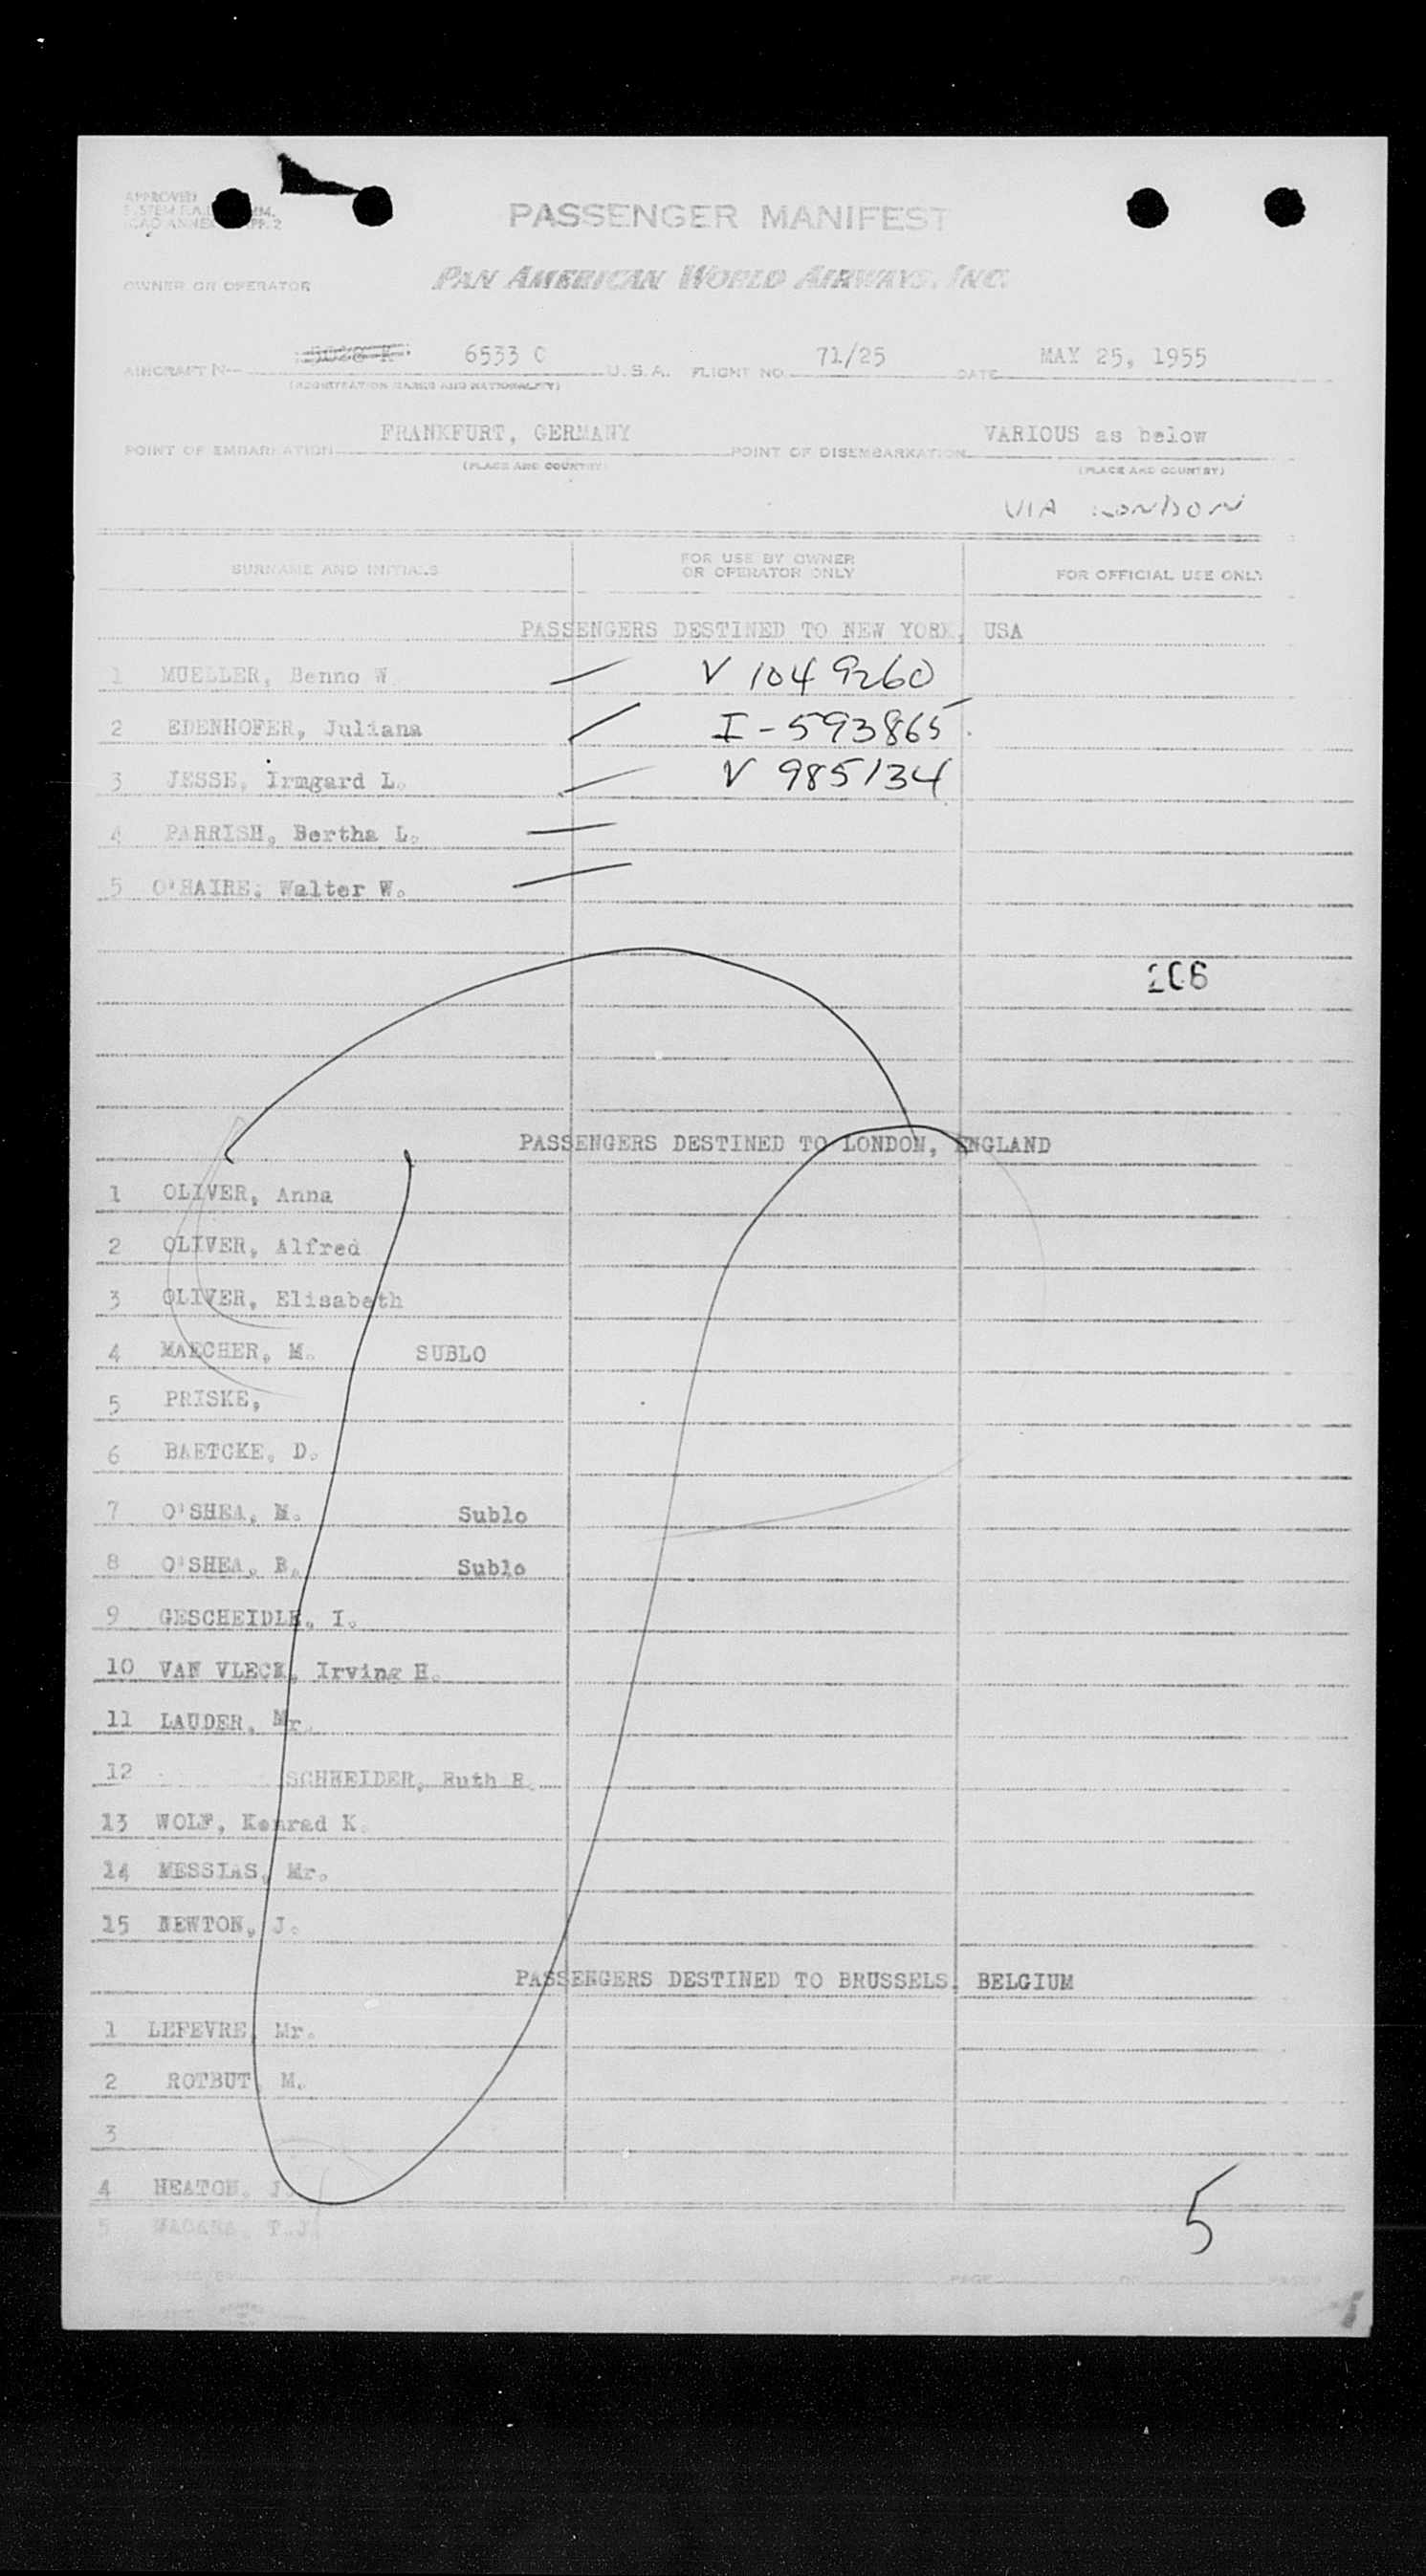 APPROVED
PASSENGER MANIFEST
OWNER OR OPERATOR
PAN AMERICAN WORLD AIRWAYS, INC.
AIRCRAFT N- 6533 C U.S.A. FLIGHT NO. 71/25 DATE MAY 25, 1955
(REGISTRATION MARKS AND NATIONALITY)
POINT OF EMBARKATION FRANKFURT, GERMANY POINT OF DISEMBARKATION VARIOUS as below
(PLACE AND COUNTRY) (PLACE AND COUNTRY)
VIA LONDON
SURNAME AND INITIALS FOR USE BY OWNER OR OPERATOR ONLY FOR OFFICIAL USE ONLY
PASSENGERS DESTINED TO NEW YORK, USA
1 MUELLER, Benno W. V 1049260
2 EDENHOFER, Juliana I-593865
3 JESSE, Irmgard L. V 985134
4 PARRISH, Bertha L.
5 O'HAIRE, Walter W.
206
PASSENGERS DESTINED TO LONDON, ENGLAND
1 OLIVER, Anna
2 OLIVER, Alfred
3 OLIVER, Elisabeth
4 MAECHER, M. SUBLO
5 PRISKE,
6 BAETCKE, D.
7 O'SHEA, M. Sublo
8 O'SHEA, B. Sublo
9 GESCHEIDLE, I.
10 VAN VLECK, Irving H.
11 LAUDER, Mr.
12 SCHNEIDER, Ruth R.
13 WOLF, Konrad K.
14 MESSIAS, Mr.
15 NEWTON, J.
PASSENGERS DESTINED TO BRUSSELS, BELGIUM
1 LEFEVRE, Mr.
2 ROTBUT, M.
3
4 HEATON, J.
5
5
PAGE OF PAGES